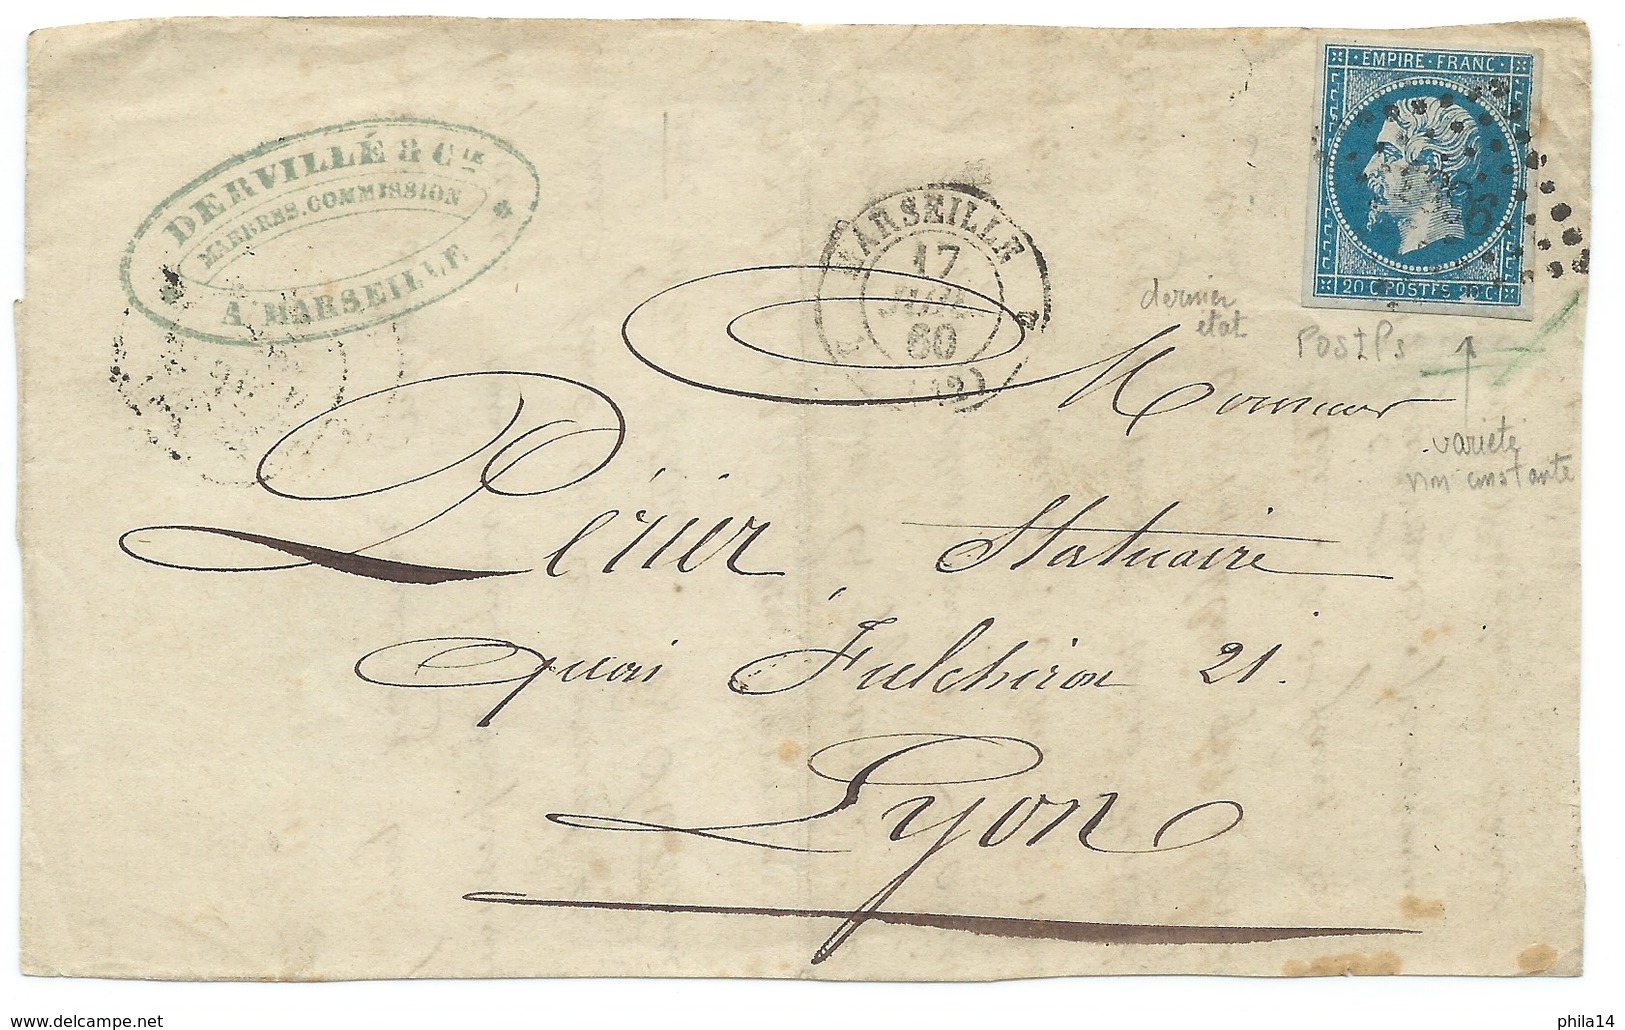 DERVILLÉ & CIE
MARBRES. COMMISSION
A MARSEILLE
MARSEILLE
17
60
(12)
EMPIRE · FRANC ·
20 C POSTES 20 C
dernier
état
POSTPS
variété
non constante
Monsieur
Périer, Statuaire
Quai Fulchiron 21.
Lyon
www.delcampe.net
phila14